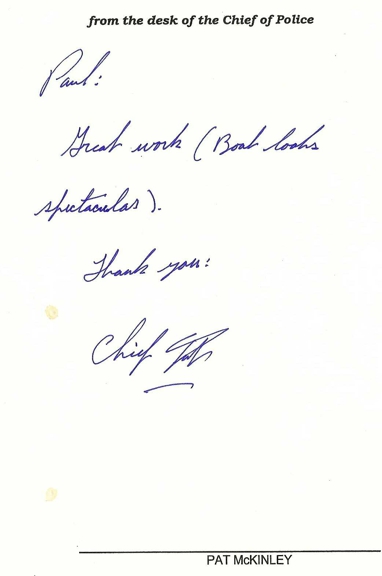 from the desk of the Chief of Police
Paul:
Great work (Boat looks
spectacular).
Thank you:
Chief Pat
PAT McKINLEY